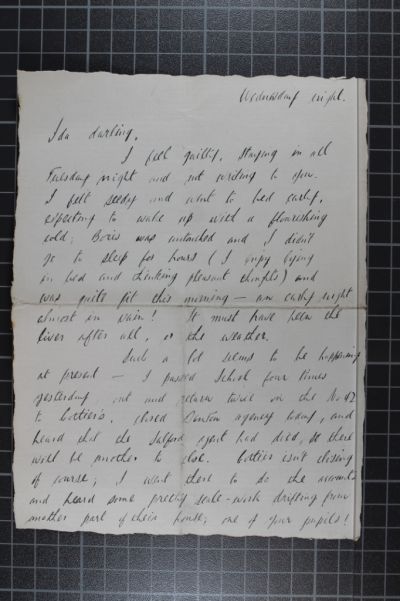 Wednesday night.
Ida darling,
I feel guilty, staying in all
Tuesday night and not writing to you.
I felt seedy and went to bed early,
expecting to wake up with a flourishing
cold; Boris was untouched and I didn't
go to sleep for hours (I enjoy lying
in bed and thinking pleasant thoughts) and
was quite fit this morning — an early night
almost in vain! It must have been the
liver after all, or the weather.
Such a lot seems to be happening
at present — I passed School four times
yesterday, out and return twice on the No 42
to closed agency today, and
heard that the Salford agent had died, so there
will be another to close. isn't closing
of course; I went there to do the accounts
and heard some pretty scale-work drifting from
another part of their house; one of your pupils!